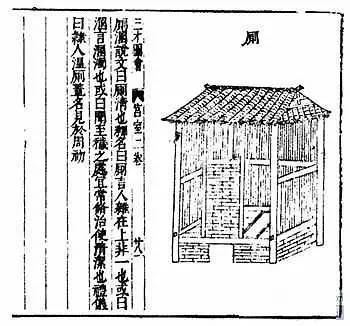 厠
三才圖會 宮室二卷 廿八
厠溷說文曰厠清也釋名曰厠言人雜在上非一也或曰
溷言溷濁也或曰圊至穢之處宜常脩治使清潔也禮儀
曰隸人湼厠蓋名見於周初